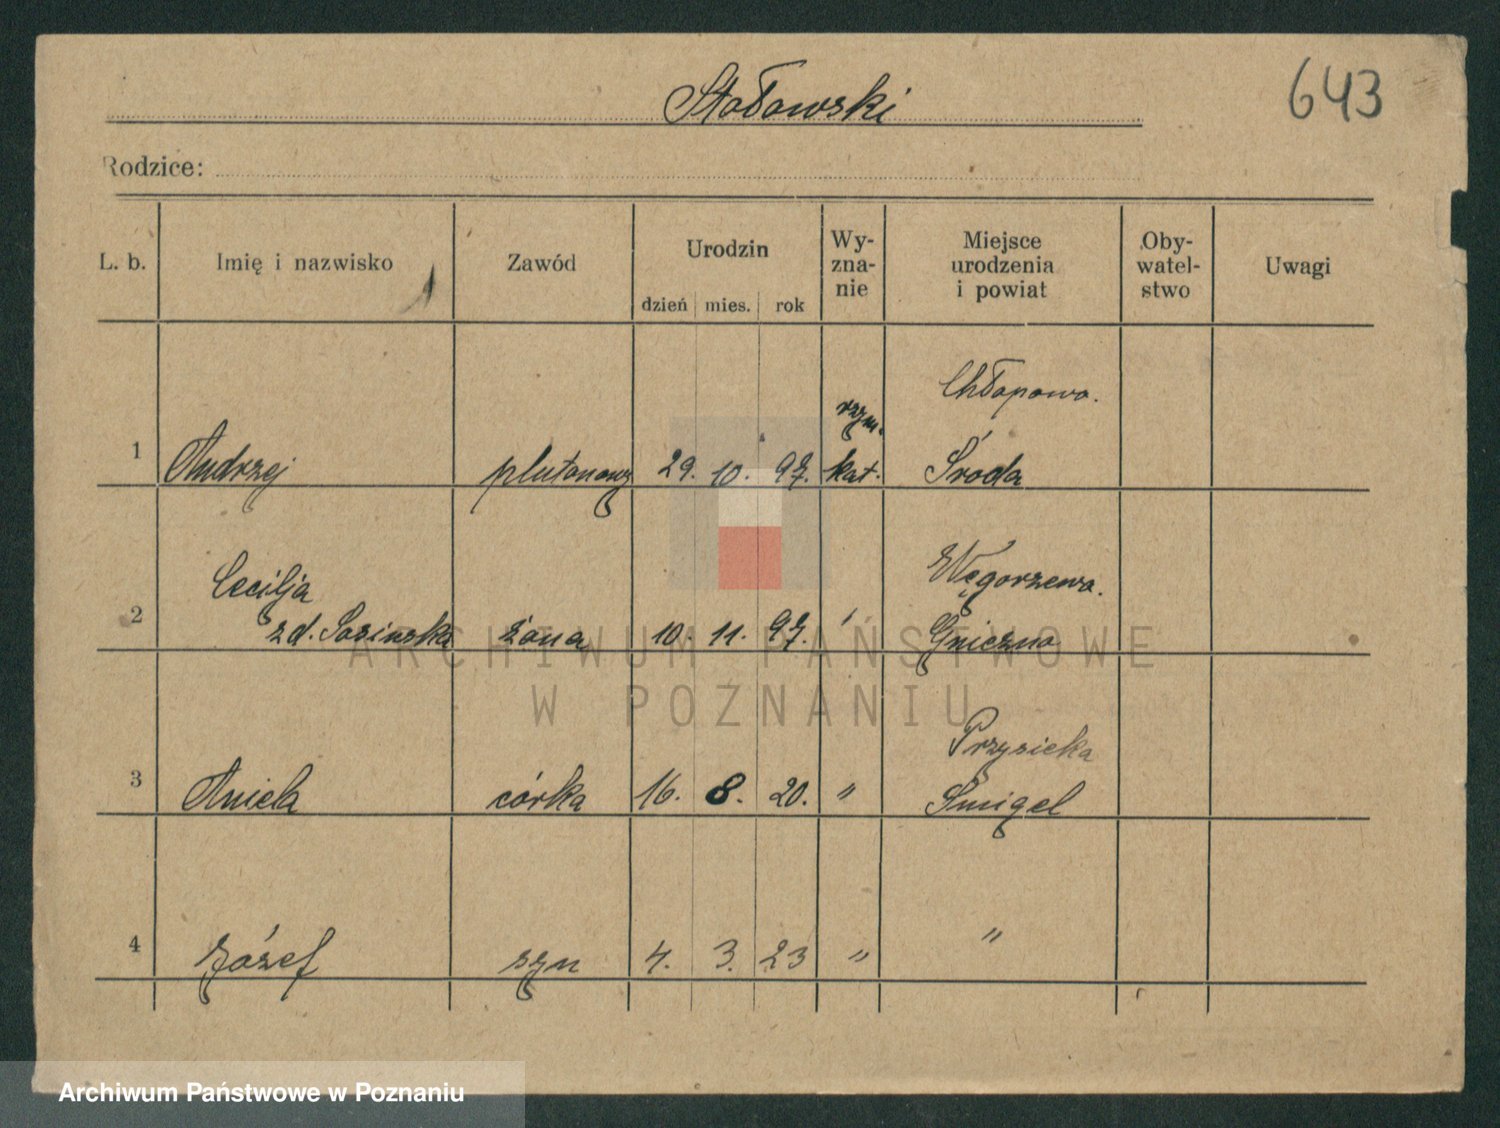 Stołowski
643
Rodzice:
L. b. Imię i nazwisko Zawód Urodzin dzień mies. rok Wy-zna-nie Miejsce urodzenia i powiat Oby-watel-stwo Uwagi
Chłapowo.
rzym.
1 Andrzej plutonowy 29. 10. 97. kat. Środa
Cecilja Węgorzewo.
2 zd. Sosinska żona 10. 11. 97. " Gniezno
Przysieka
3 Aniela córka 16. 8. 20. " Śmigel
4 Józef syn 4. 3. 23 " "
ARCHIWUM PAŃSTWOWE
W POZNANIU
Archiwum Państwowe w Poznaniu